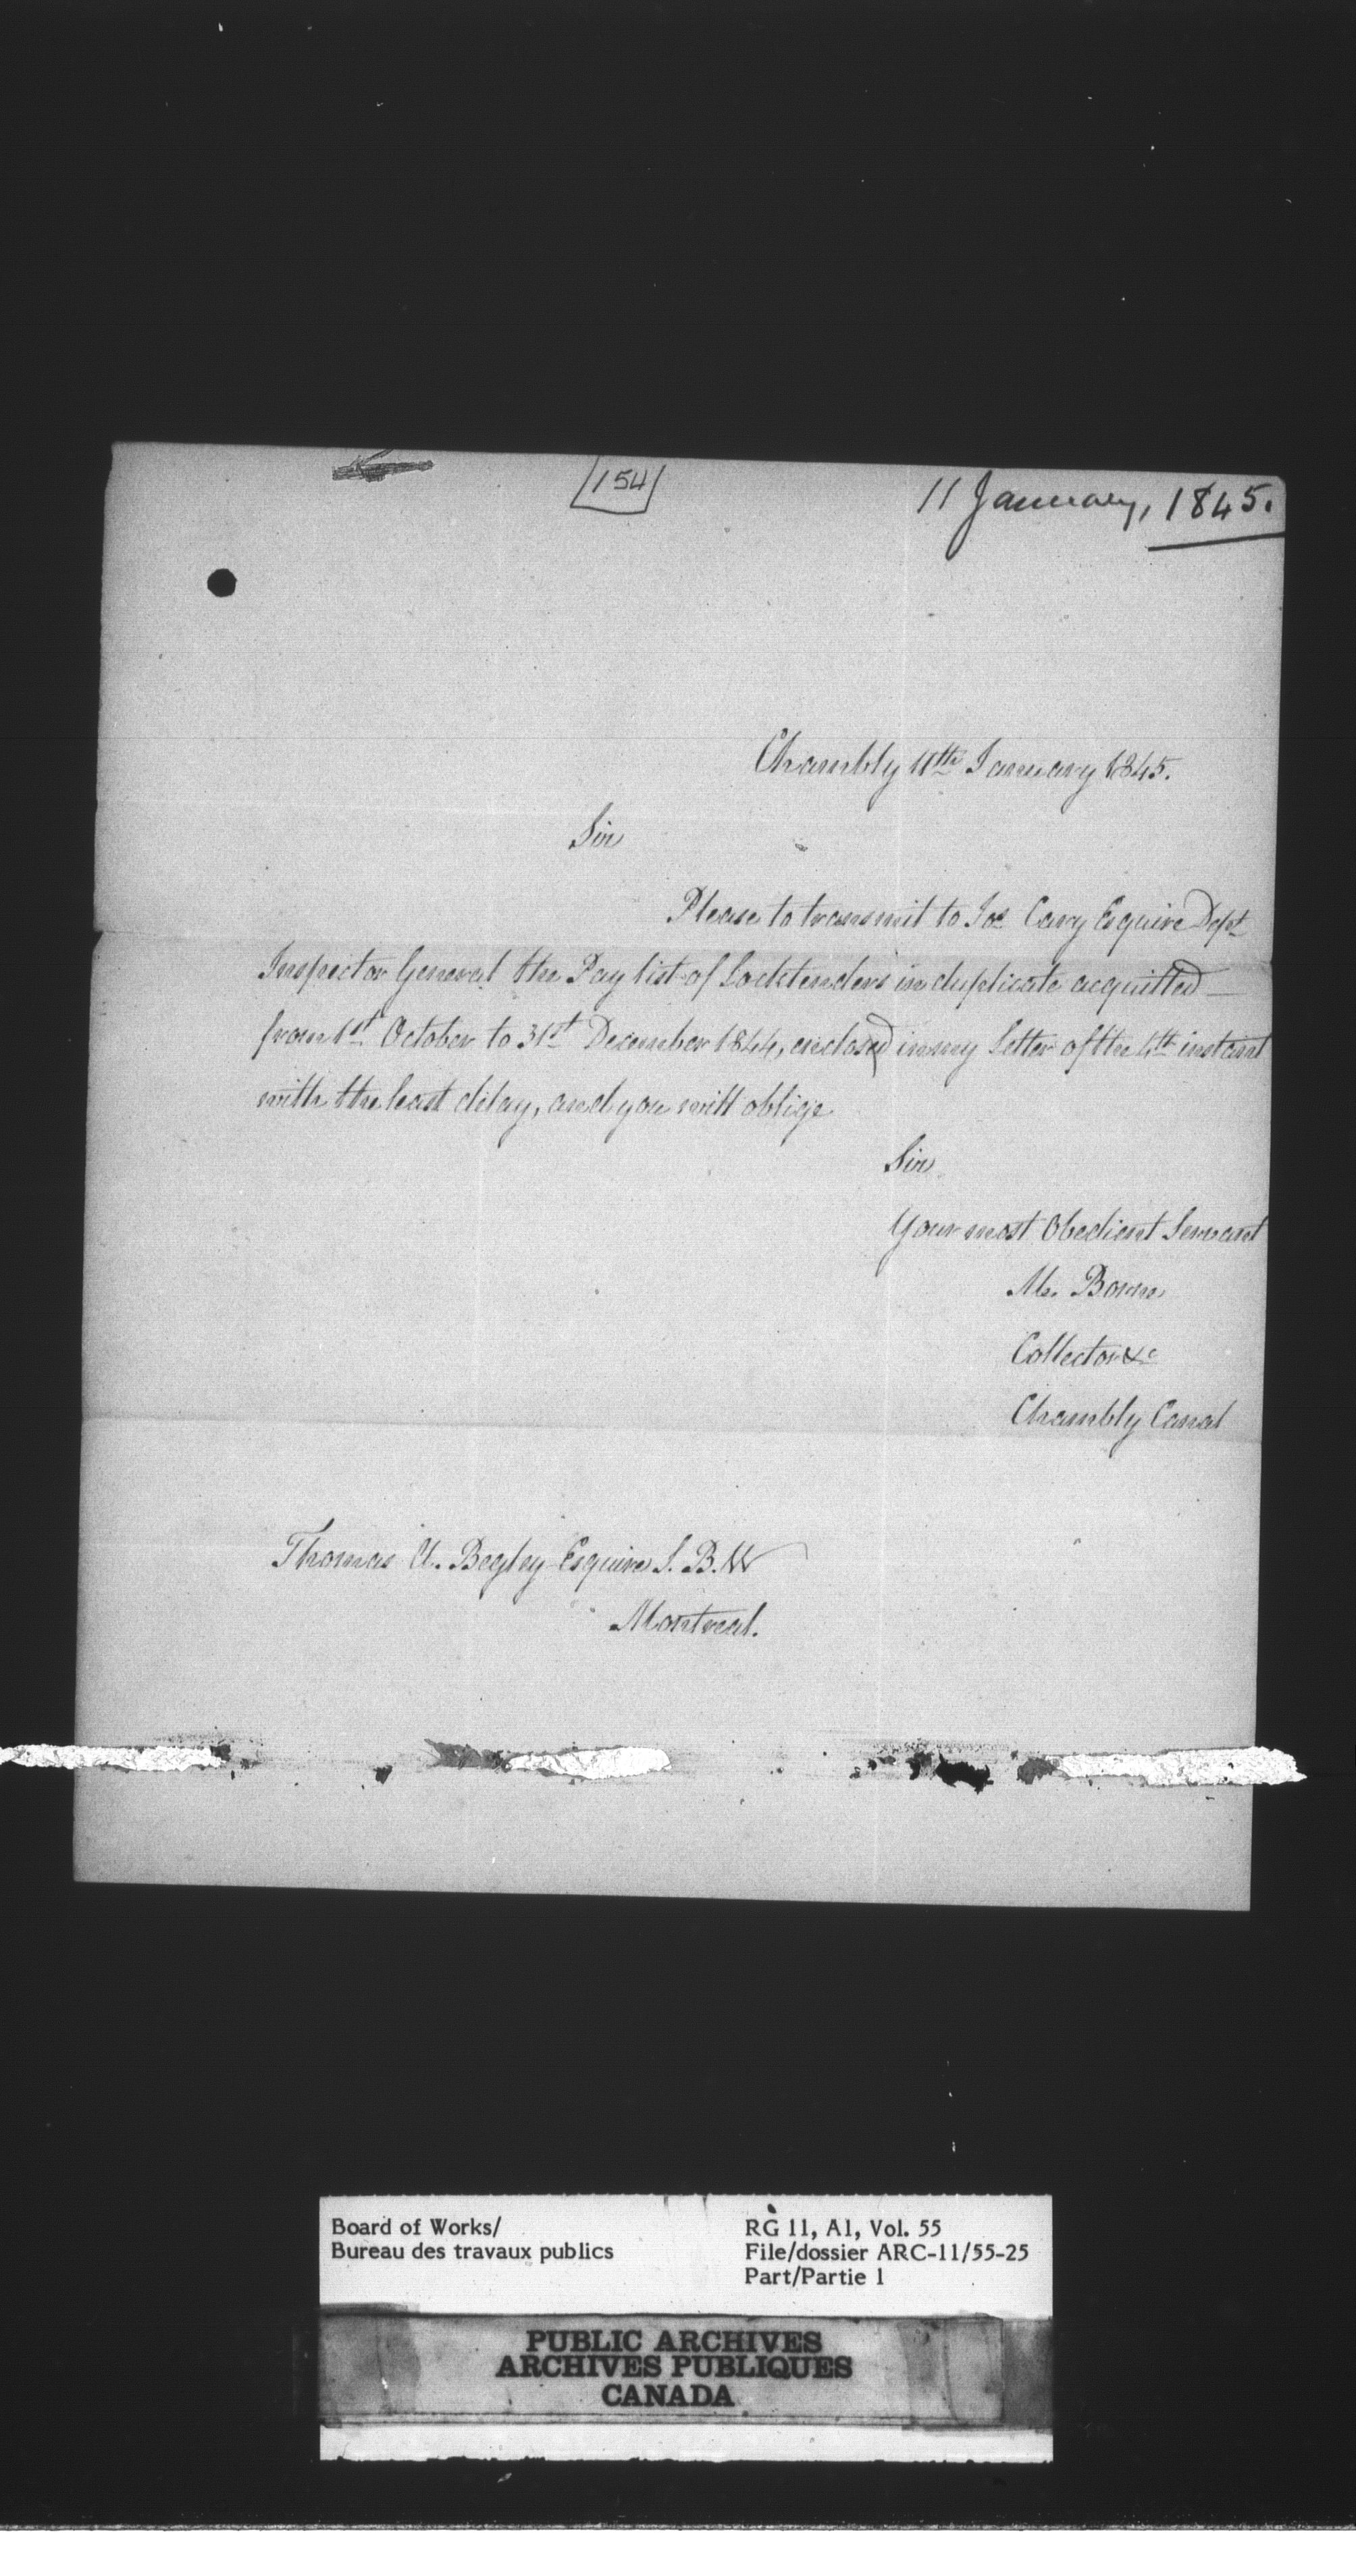 154
11 January, 1845.
Chambly 11th January 1845.
Sir
Please to transmit to Jos Cary Esquire Dept
Inspector General the Pay list of Locktenders in duplicate acquitted
from 1st October to 31st December 1844, enclosed in my letter of the 4th instant
with the least delay, and you will oblige
Sir
Your most Obedient Servant
Collector &c
Chambly Canal
Thomas A. Begley Esquire S. B. W
Montreal.
Board of Works/
Bureau des travaux publics
RG 11, A1, Vol. 55
File/dossier ARC-11/55-25
Part/Partie 1
PUBLIC ARCHIVES
ARCHIVES PUBLIQUES
CANADA